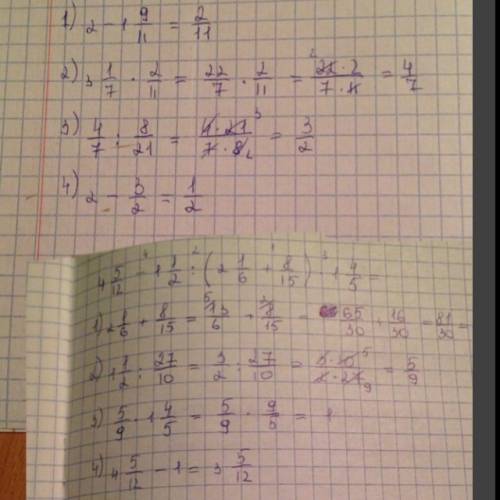 1) 2 - 1 9/11 = 2/11
2) 3 1/7 · 2/11 = 22/7 · 2/11 = 22·2/7·11 = 4/7
3) 4/7 : 8/21 = 4·21/7·8 = 3/2
4) 2 - 3/2 = 1/2
4 5/12 - 1 1/2 : (2 1/6 + 8/15) · 1 4/5 =
1) 2 1/6 + 8/15 = 13/6 + 8/15 = 65/30 + 16/30 = 81/30 =
2) 1 1/2 : 27/10 = 3/2 : 27/10 = 3·10/2·27 = 5/9
3) 5/9 · 1 4/5 = 5/9 · 9/5 = 1
4) 4 5/12 - 1 = 3 5/12